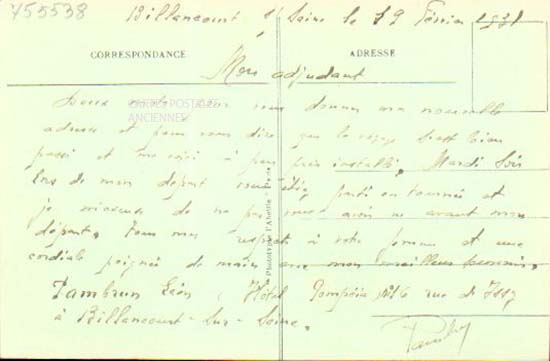 455538
Billancourt s/ Seine le 19 Février 1931
CORRESPONDANCE
ADRESSE
Mon adjudant
Deux mots pour vous donner ma nouvelle
CARTES POSTALES
ANCIENNES
adresse et pour vous dire que le voyage s'est bien
passé et me voici à peu près installé. Mardi Soir
lors de mon départ vous étiez parti en tournée et
je m'excuse de ne pas vous avoir vu avant mon
départ. Tous mes respects à votre femme et une
cordiale poignée de main avec mon meilleur souvenir.
Tambrun Léon, Hôtel Pompéia, rue d'Issy
à Billancourt-sur-Seine.
Phototypie l'Abeille